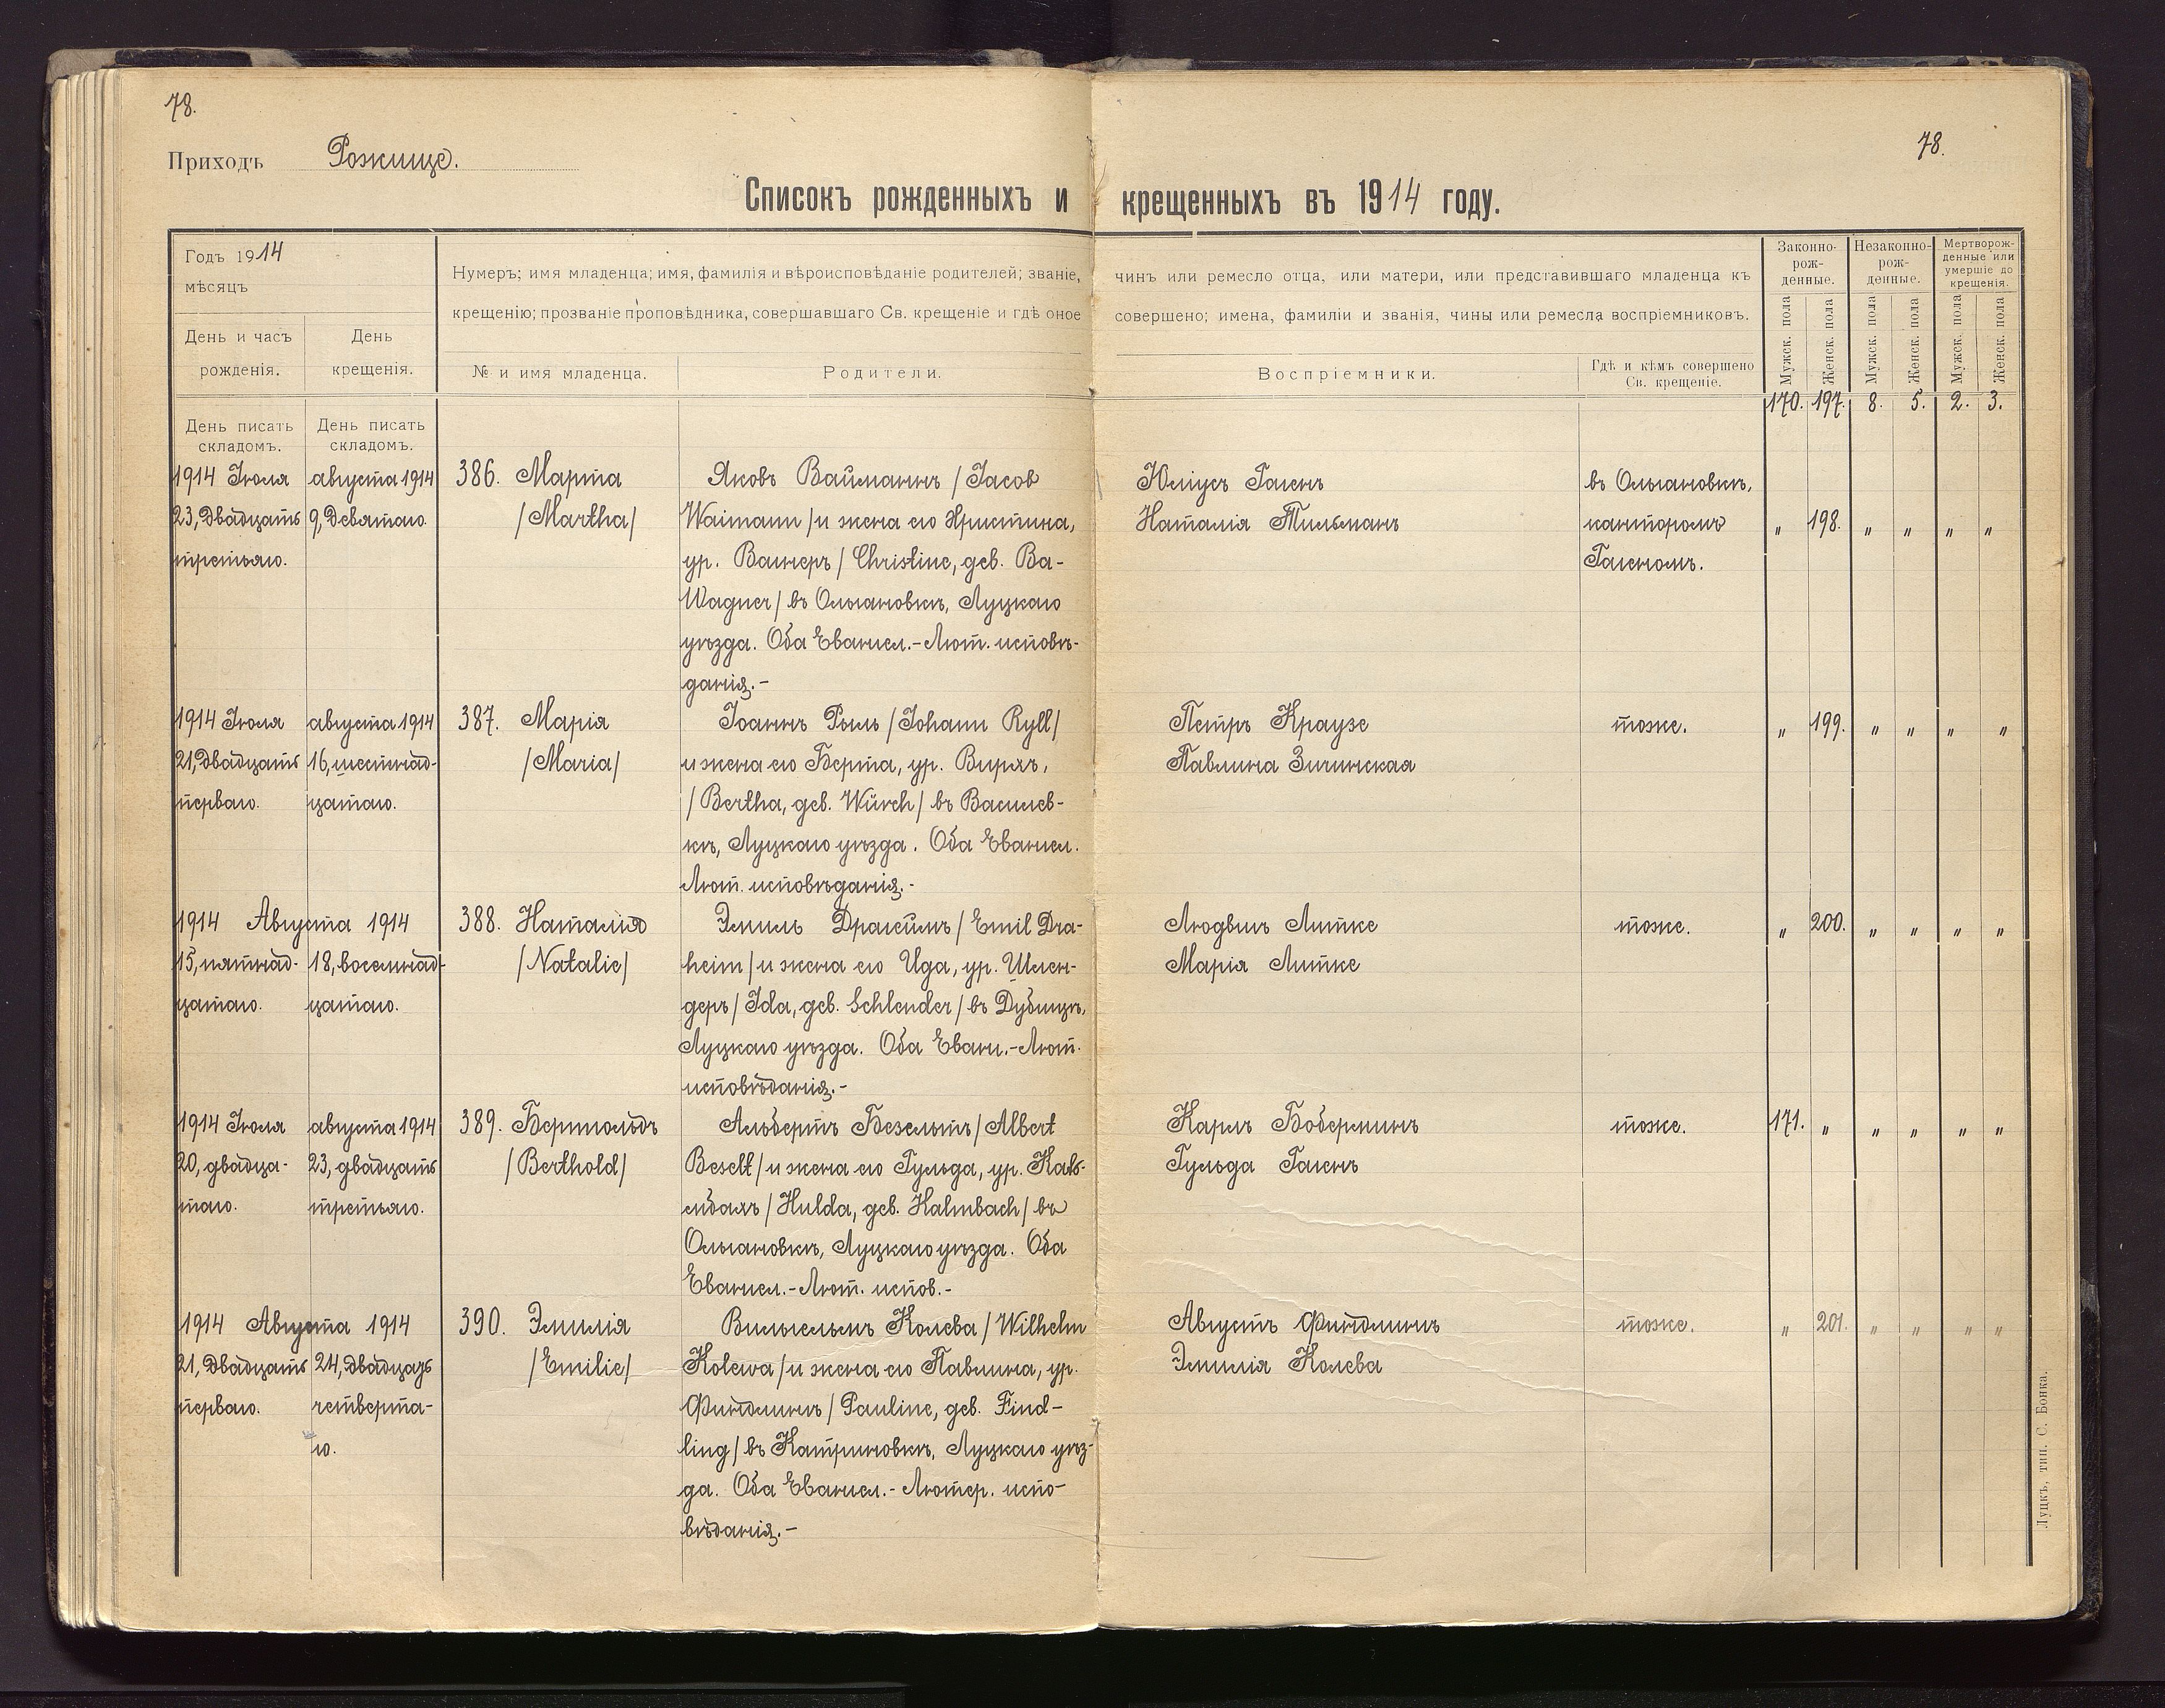 78.
78.
Приходъ Рожище.
Списокъ рожденныхъ и крещенныхъ въ 1914 году.
Годъ 1914
мѣсяцъ
День и часъ
рожденія.
День
крещенія.
Нумеръ; имя младенца; имя, фамилія и вѣроисповѣданіе родителей; званіе, чинъ или ремесло отца, или матери, или представившаго младенца къ
крещенію; прозваніе проповѣдника, совершавшаго Св. крещеніе и гдѣ оное совершено; имена, фамиліи и званія, чины или ремесла воспріемниковъ.
№ и имя младенца.
Родители.
Воспріемники.
Гдѣ и кѣмъ совершено
Св. крещеніе.
Законно-
рож-
денные.
Незаконно-
рож-
денные.
Мертворож-
денные или
умершіе до
крещенія.
Мужск. пола
Женск. пола
Мужск. пола
Женск. пола
Мужск. пола
Женск. пола
170. 197. 8. 5. 2. 3.
День писать
складомъ.
День писать
складомъ.
1914 Іюля
23, двадцать
третьяго.
августа 1914
9, девятаго.
386. Марта
/Martha/
Яковъ Вайманнъ /Jacob
Waimann/ и жена его Христина,
ур. Вагнеръ /Christine, geb. Wa-
Wagner/ въ Ольгановкѣ, Луцкаго
уѣзда. Оба Евангел.-Лют. исповѣ-
данія.-
Юліусъ Гагенъ
Наталія Тильманъ
въ Ольгановкѣ,
канторомъ
Гагеномъ.
" 198. " " " "
1914 Іюля
21, двадцать
перваго.
августа 1914
16, шестнад-
цатаго.
387. Марія
/Maria/
Іоаннъ Рыль /Johann Ryll/
и жена его Берта, ур. Вирхъ,
/Bertha, geb. Würch/ въ Василев-
кѣ, Луцкаго уѣзда. Оба Евангел.
Лют. исповѣданія.-
Петръ Краузе
Павлина Зичинская
тоже.
" 199. " " " "
1914 Августа 1914
15, пятнад-
цатаго.
18, восемнад-
цатаго.
388. Наталія
/Natalie/
Эмиль Драгеймъ /Emil Dra-
heim/ и жена его Ида, ур. Шлен-
деръ /Ida, geb. Schlender/ въ Дубищѣ,
Луцкаго уѣзда. Оба Еванг.-Лют.
исповѣданія.-
Людвигъ Литке
Марія Литке
тоже.
" 200. " " " "
1914 Іюля
20, двадца-
таго.
августа 1914
23, двадцать
третьяго.
389. Бертольдъ
/Berthold/
Альбертъ Безельтъ /Albert
Beselt/ и жена его Гульда, ур. Каль-
мбахъ /Hulda, geb. Kalmbach/ въ
Ольгановкѣ, Луцкаго уѣзда. Оба
Евангел.-Лют. испов.-
Карлъ Боберминъ
Гульда Гагенъ
тоже.
171. " " " " "
1914 Августа 1914
21, двадцать
перваго.
24, двадцать
четверта-
го.
390. Эмилія
/Emilie/
Вильгельмъ Колева /Wilhelm
Kolewa/ и жена его Павлина, ур.
Финдлингъ /Pauline, geb. Find-
ling/ въ Катриновкѣ, Луцкаго уѣз-
да. Оба Евангел.-Лютер. испо-
вѣданія.-
Августъ Финдлингъ
Эмилія Колева
тоже.
" 201. " " " "
Луцкъ, тип. С. Бонка.